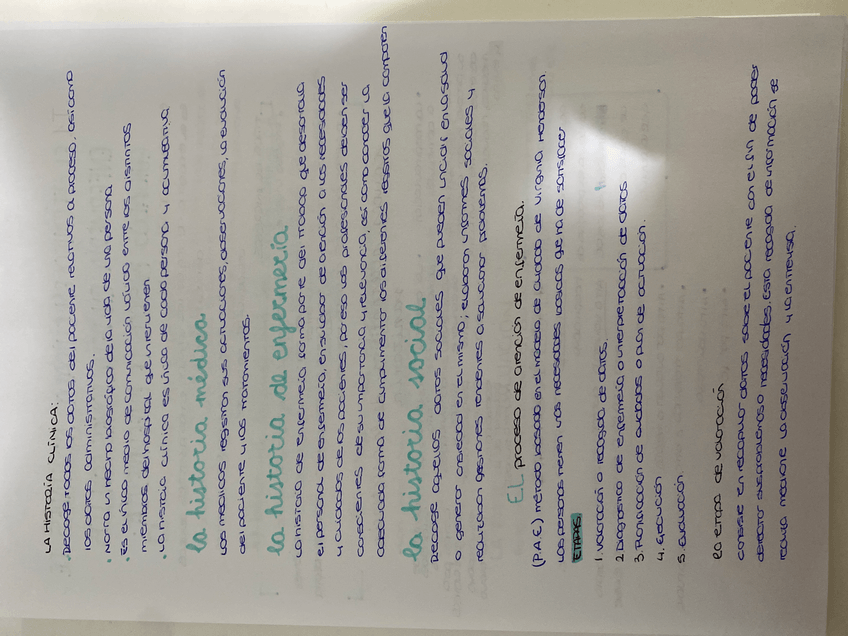 LA HISTORIA CLÍNICA:
• Recoge todos los datos del paciente relativos al proceso, así como
los datos administrativos.
• Narra un relato biográfico de la vida de una persona
• Es el único medio de comunicación válido entre los distintos
miembros del hospital que intervienen
• La historia clínica es única de cada persona y acumulativa
la historia médica
Los médicos registran sus actuaciones, observaciones, la evolución
del paciente y los tratamientos.
la historia de enfermería
La historia de enfermería forma parte del trabajo que desarrolla
el personal de enfermería, en su labor de atención a las necesidades
y cuidados de los pacientes, por eso los profesionales deben ser
conscientes de su importancia y relevancia, así como conocer la
adecuada forma de cumplimentar los diferentes registros que la componen
la historia social
Recoge aquellos datos sociales que pueden incidir en la salud
o generar ansiedad en el mismo; elaboran informes sociales y
realizan gestiones tendentes a solucionar problemas.
EL proceso de atención de enfermería.
(P.A.E.) método basado en el modelo de cuidado de Virginia Henderson
Las personas tienen unas necesidades básicas que han de satisfacer
ETAPAS
1. Valoración o recogida de datos.
2. Diagnóstico de enfermería o interpretación de datos
3. Planificación de cuidados o plan de actuación.
4. Ejecución
5. Evaluación.
La etapa de valoración
Consiste en recopilar datos sobre el paciente con el fin de poder
detectar sus problemas o necesidades. Esta recogida de información se
realiza mediante la observación y la entrevista.